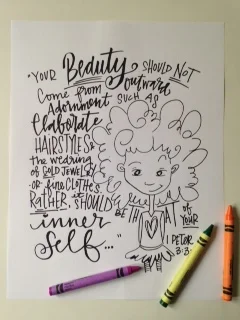 "YOUR Beauty SHOULD NOT
Come from outward
Adornment SUCH AS
Elaborate
HAIRSTYLES &
the wearing
OF GOLD JEWELRY
OR fine CLOTHES
RATHER, it SHOULD
BE THAT of
YOUR
inner
Self..."
1 PETER
3:3-